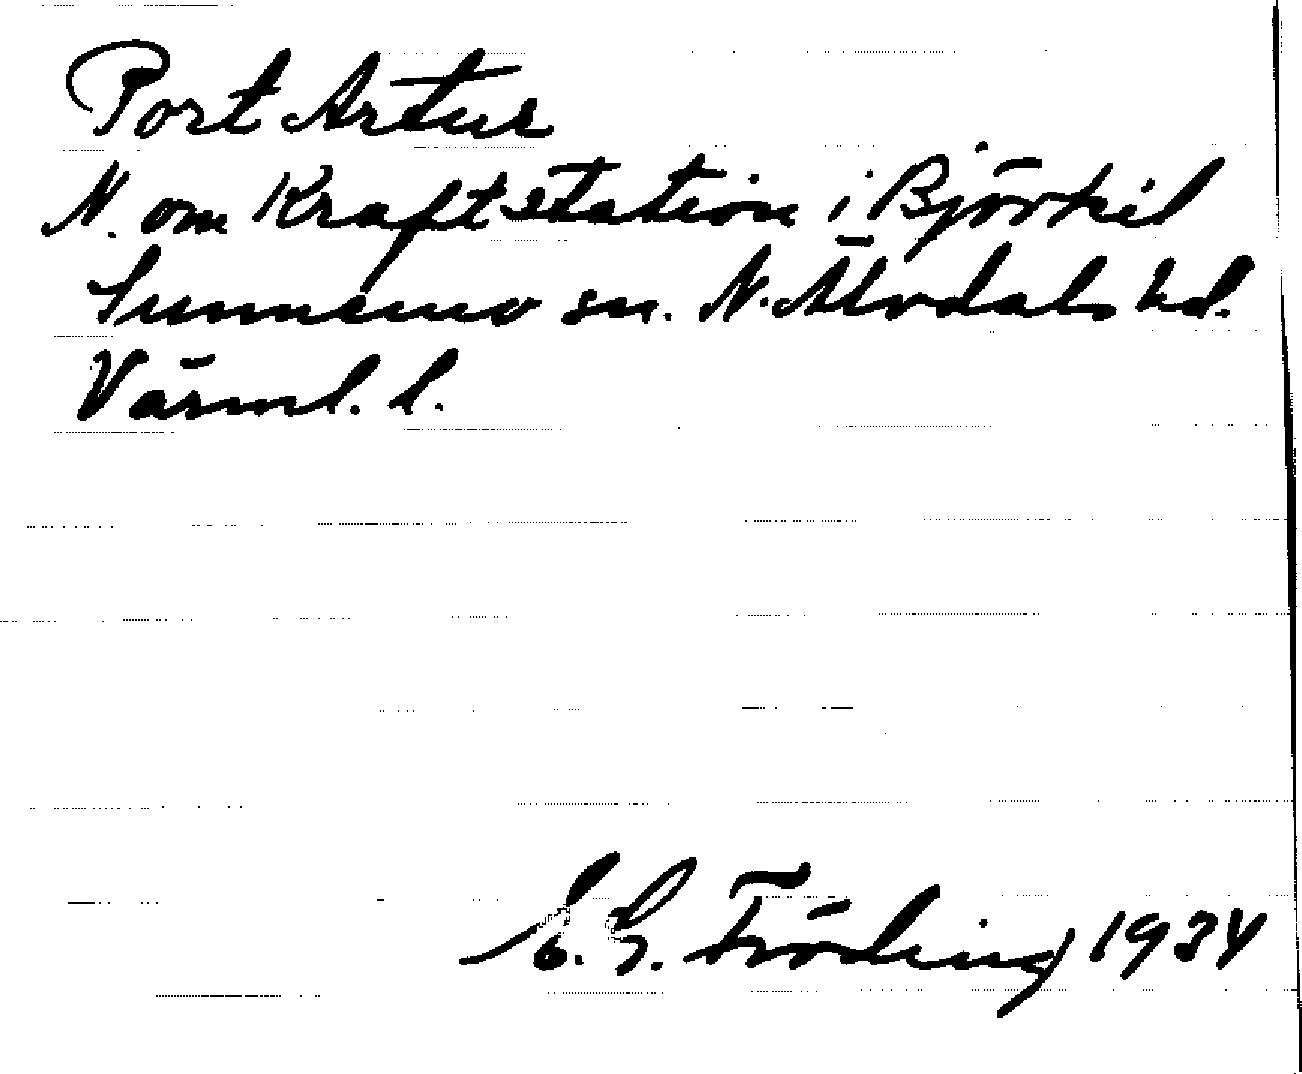 Port Artur
N. om Kraftstation i Björkil
Sunnemo sn. N. Älvdals hd.
Värml. l.
E. G. Fröding 1934